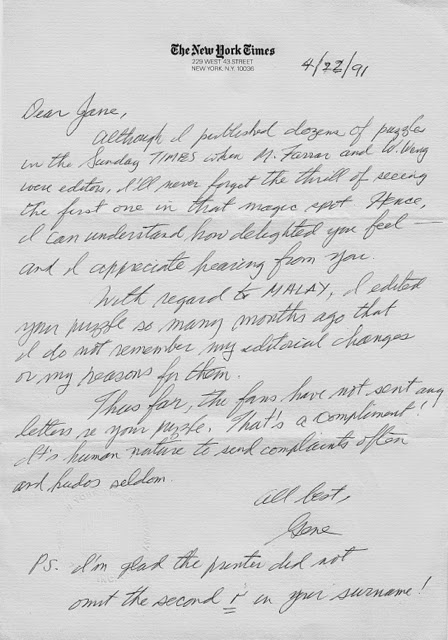 The New York Times
229 WEST 43 STREET
NEW YORK, N.Y. 10036
4/22/91
Dear Jane,
Although I published dozens of puzzles
in the Sunday TIMES when M. Farrar and W. Weng
were editors, I'll never forget the thrill of seeing
the first one in that magic spot. Hence,
I can understand how delighted you feel —
and I appreciate hearing from you.
With regard to MALAY, I edited
your puzzle so many months ago that
I do not remember my editorial changes
or my reasons for them.
Thus far, the fans have not sent any
letters re your puzzle. That's a compliment!
It's human nature to send complaints often
and kudos seldom.
All best,
Gene
PS. I'm glad the printer did not
omit the second r in your surname!